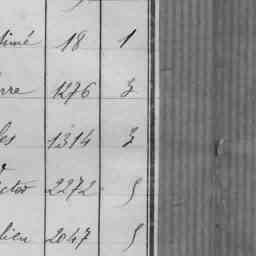 timé 18 1
rre 1276 3
les 1314 3
ctor 2272 5
lien 2047 5